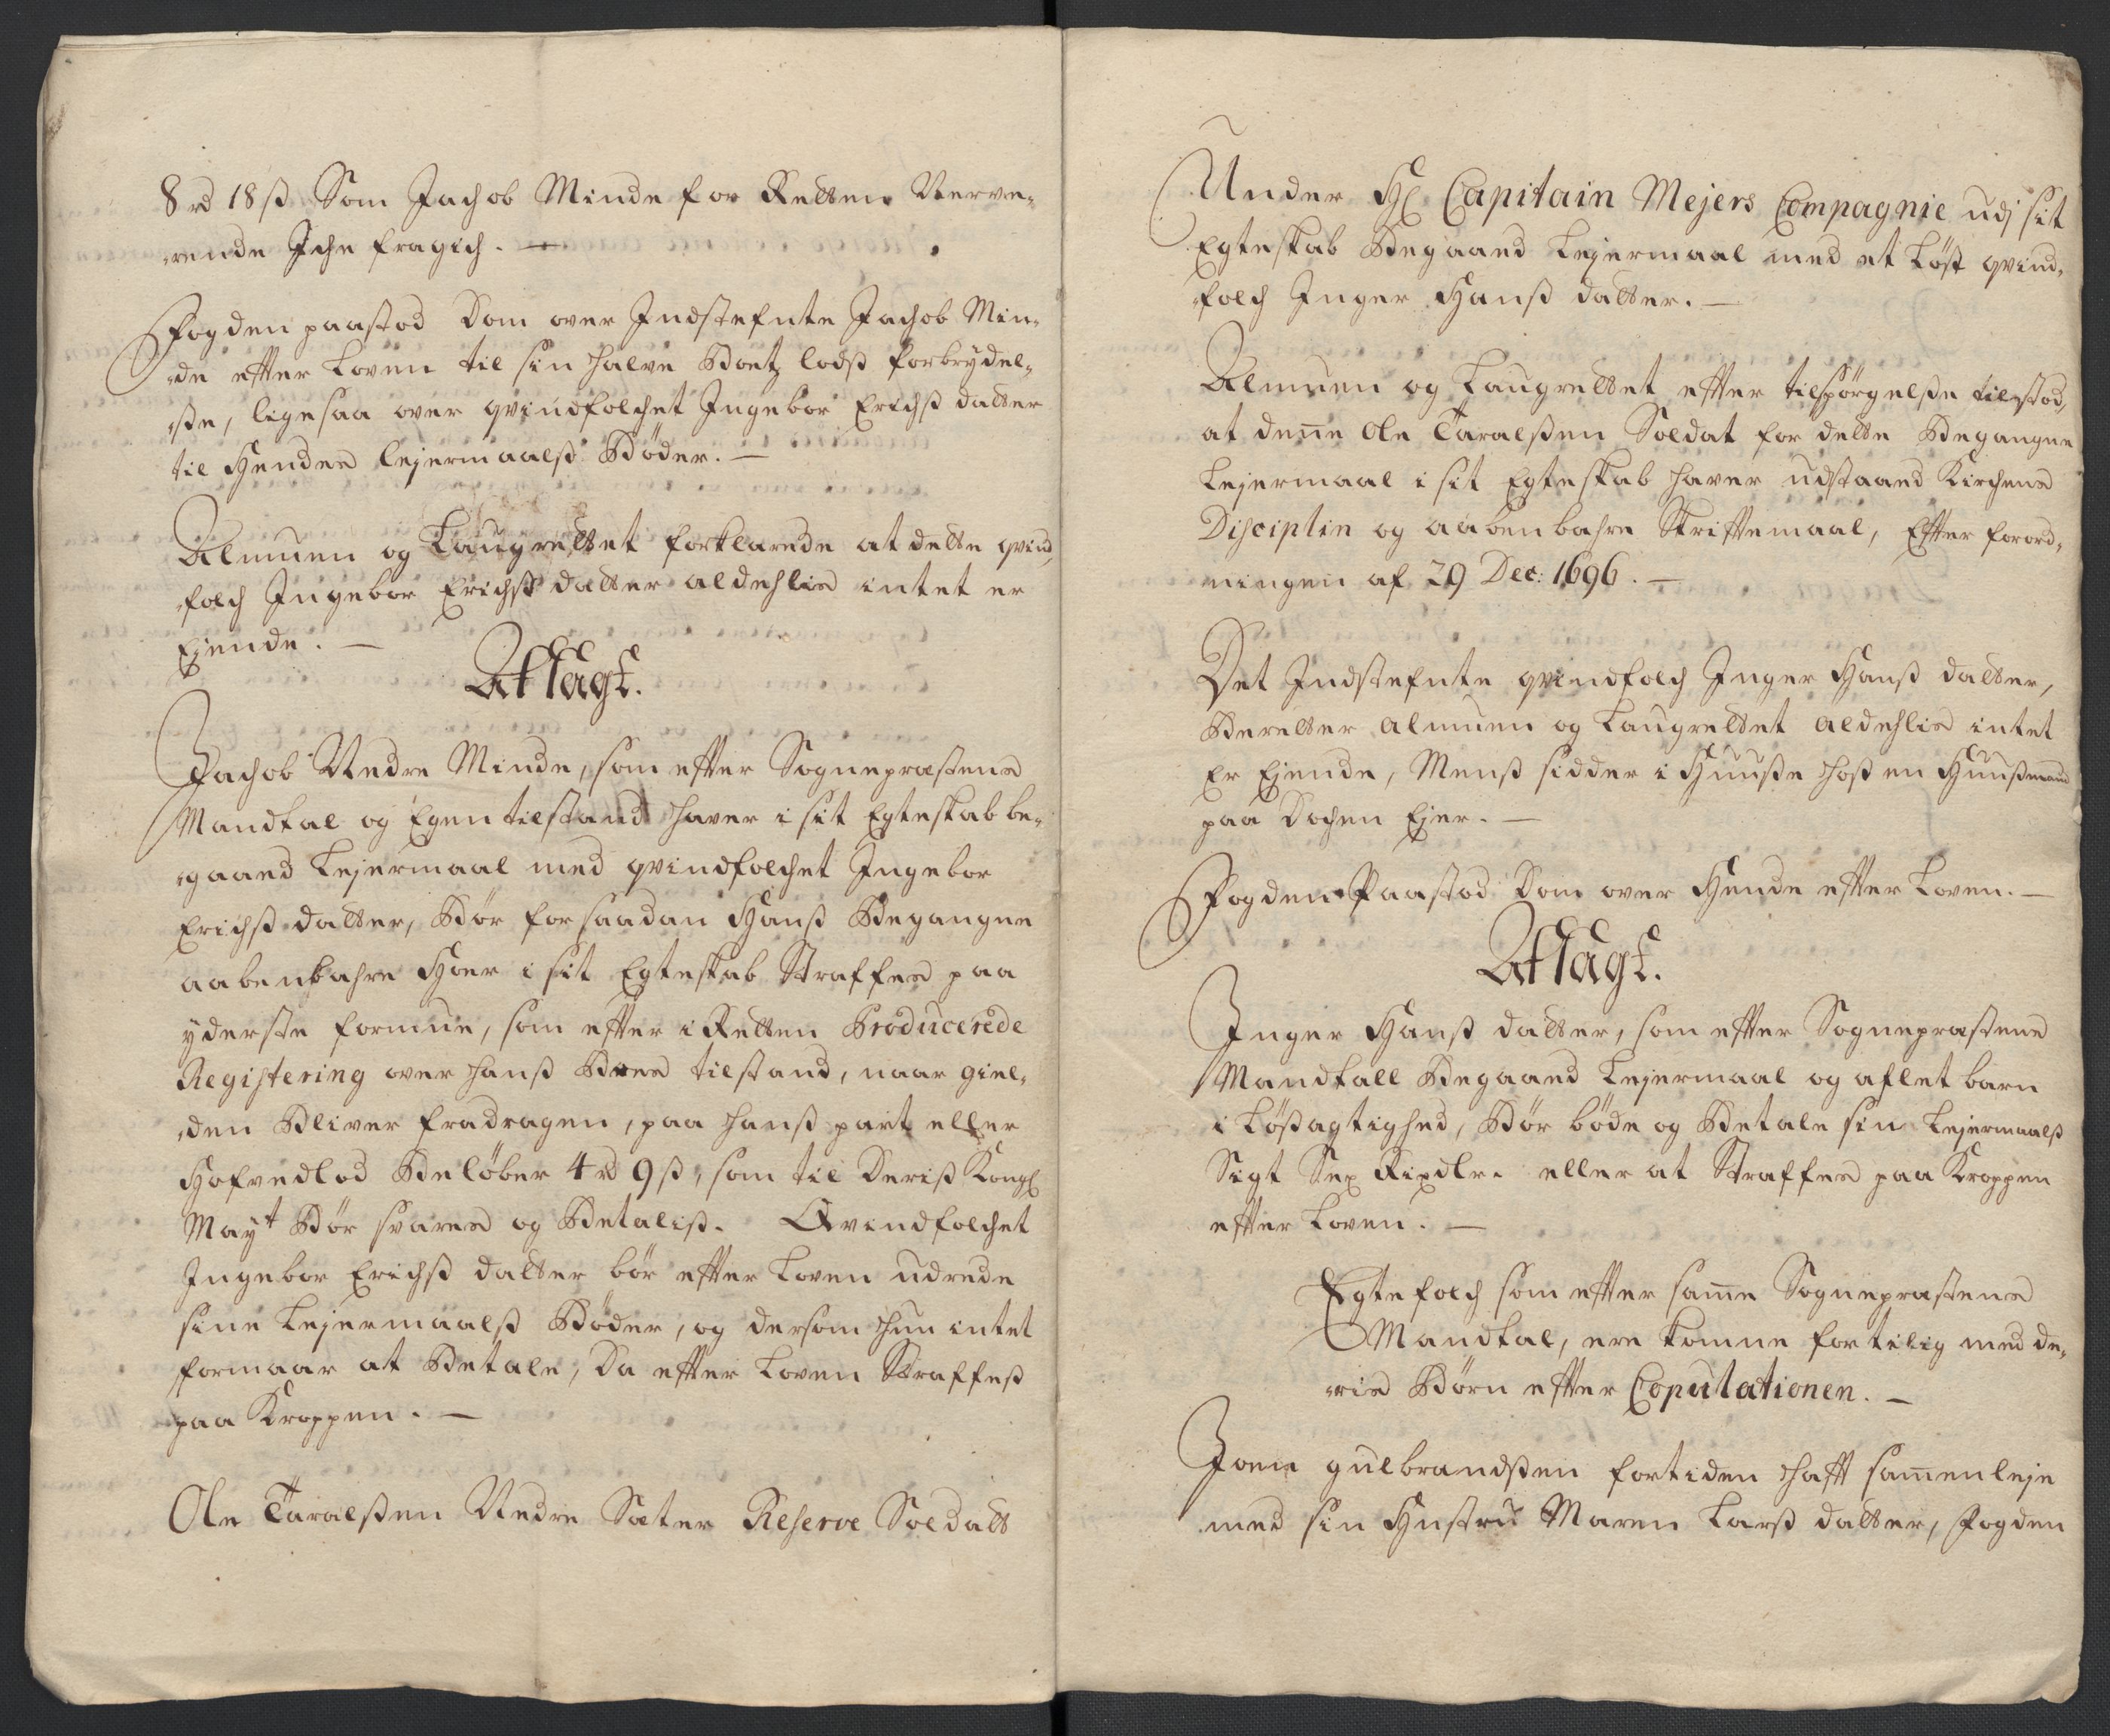 8 rd 18 ß Som Jachob Minde for Retten Nerve-
rende Iche fragich. —
Fogden paastod Dom over Indstefnte Jachob Min-
de efter Loven til sin halve Boetz lodß forbrydel-
ße, ligesaa over qvindfolchet Ingebor Erichß datter
til Hendes lejermaalß Bøder. —
Almuen og Laugrettet forklarede at dette qvind-
folch Ingebor Erichß datter aldehlis intet er
Ejende. —
Afsagt.
Jachob Nedre Minde, som efter Sognepræstens
Mandtal og Egen tilstand haver i sit Egteskab be-
gaaed Lejermaal med qvindfolchet Ingebor
Erichß datter, Bør for saadan Hanß Begangne
aabenbahre Hoer i sit Egteskab Straffes paa
yderste formue, som efter i Retten Producerede
Registering over hanß Boes tilstand, naar giel-
den Bliver fradragen, paa hanß part eller
Hofvedlod Beløber 4 rd 9 ß, som til Deriß Kongl
Mayt Bør svares og Betaliß. Qvindfolchet
Ingebor Erichß datter bør efter Loven udrede
sine Lejermaalß Bøder, og dersom hun intet
formaar at Betale, Da efter Loven Straffeß
paa Kroppen. —
Ole Taralßen Nedre Sæter Reserve Soldatt
Under Hr Capitain Mejers Compagnie udj sit
Egteskab Begaaed Lejermaal med et Løst qvind-
folch Inger Hanß datter. —
Almuen og Laugrettet efter tilspørgelße tilstod,
at denne Ole Taralßen Soldat for dette Begangne
Lejermaal i sit Egteskab haver udstaaed Kirchens
Disciplin og aabenbahre Skriftemaal, Efter forord-
ningen af 29 Dec: 1696. —
Det Indstefnte qvindfolch Inger Hanß datter,
Beretter Almuen og Laugrettet aldehlis intet
Er Ejende, Menß sidder i Huuße hoß en Huußmand
paa Dochen Ejer. —
Fogden Paastod Dom over Hende efter Loven. —
Afsagt.
Inger Hanß datter, som efter Sognepræstens
Mandtall Begaaed Lejermaal og aflet barn
i Løßagtighed, Bør bøde og Betale sin Lejermaalß
Sigt Sex Rixdlr. eller at Straffes paa Kroppen
efter Loven. —
Egtefolch som efter samme Sognepræstens
Mandtal, ere komne for tilig med de-
ris Børn efter Copulationen. —
Joen gulbrandßen fortiden haft sammenleje
med sin Hustru Maren Larß datter, Fogden